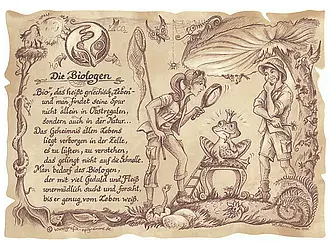 Die Biologen
„Bio", das heißt griechisch „Leben"
und man findet seine Spur
nicht allein in Obstregalen,
sondern auch in der Natur...
Das Geheimnis allen Lebens
liegt verborgen in der Zelle,
es zu lüften, zu verstehen,
das gelingt nicht auf die Schnelle.
Man bedarf des Biologen,
der mit viel Geduld und Fleiß
unermüdlich sucht und forscht,
bis er genug vom Leben weiß.